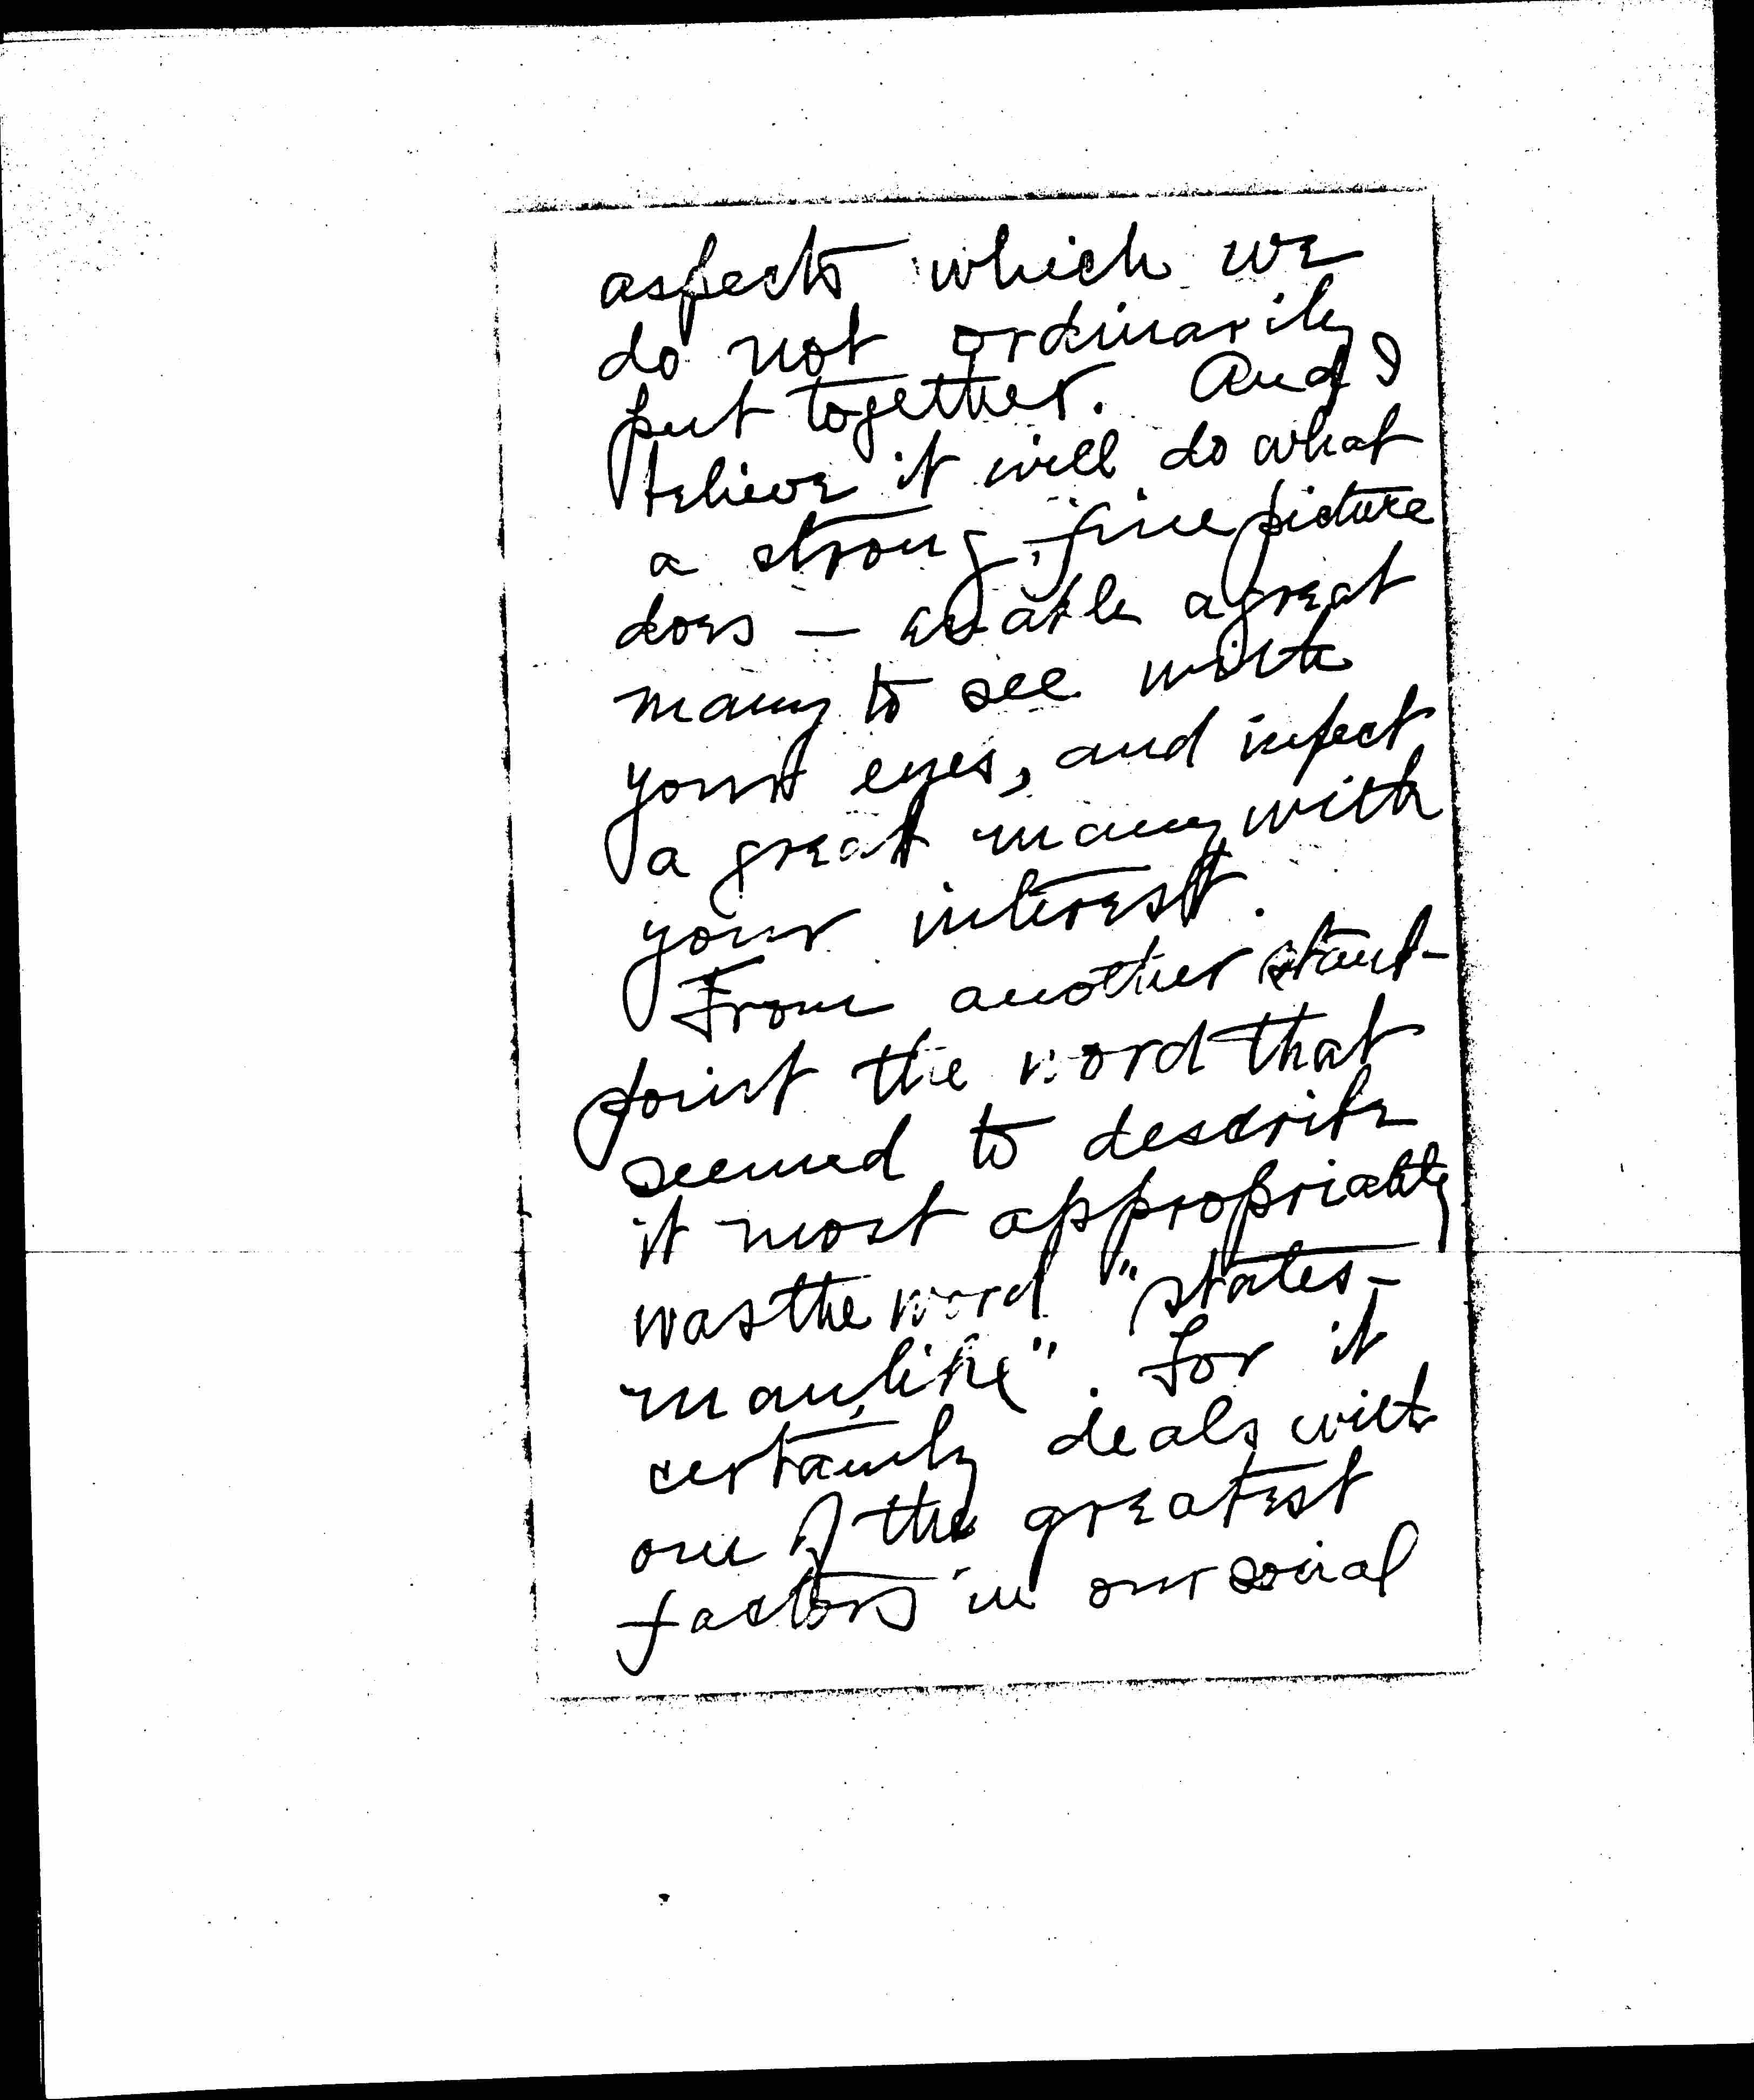 aspects which we
do not ordinarily
put together. And I
believe it will do what
a strong, fine picture
does — enable a great
many to see with
your eyes, and infect
a great many with
your interest.
From another stand-
point the word that
seemed to describe
it most appropriately
was the word "states-
manlike". For it
certainly deals with
one of the greatest
factors in our social